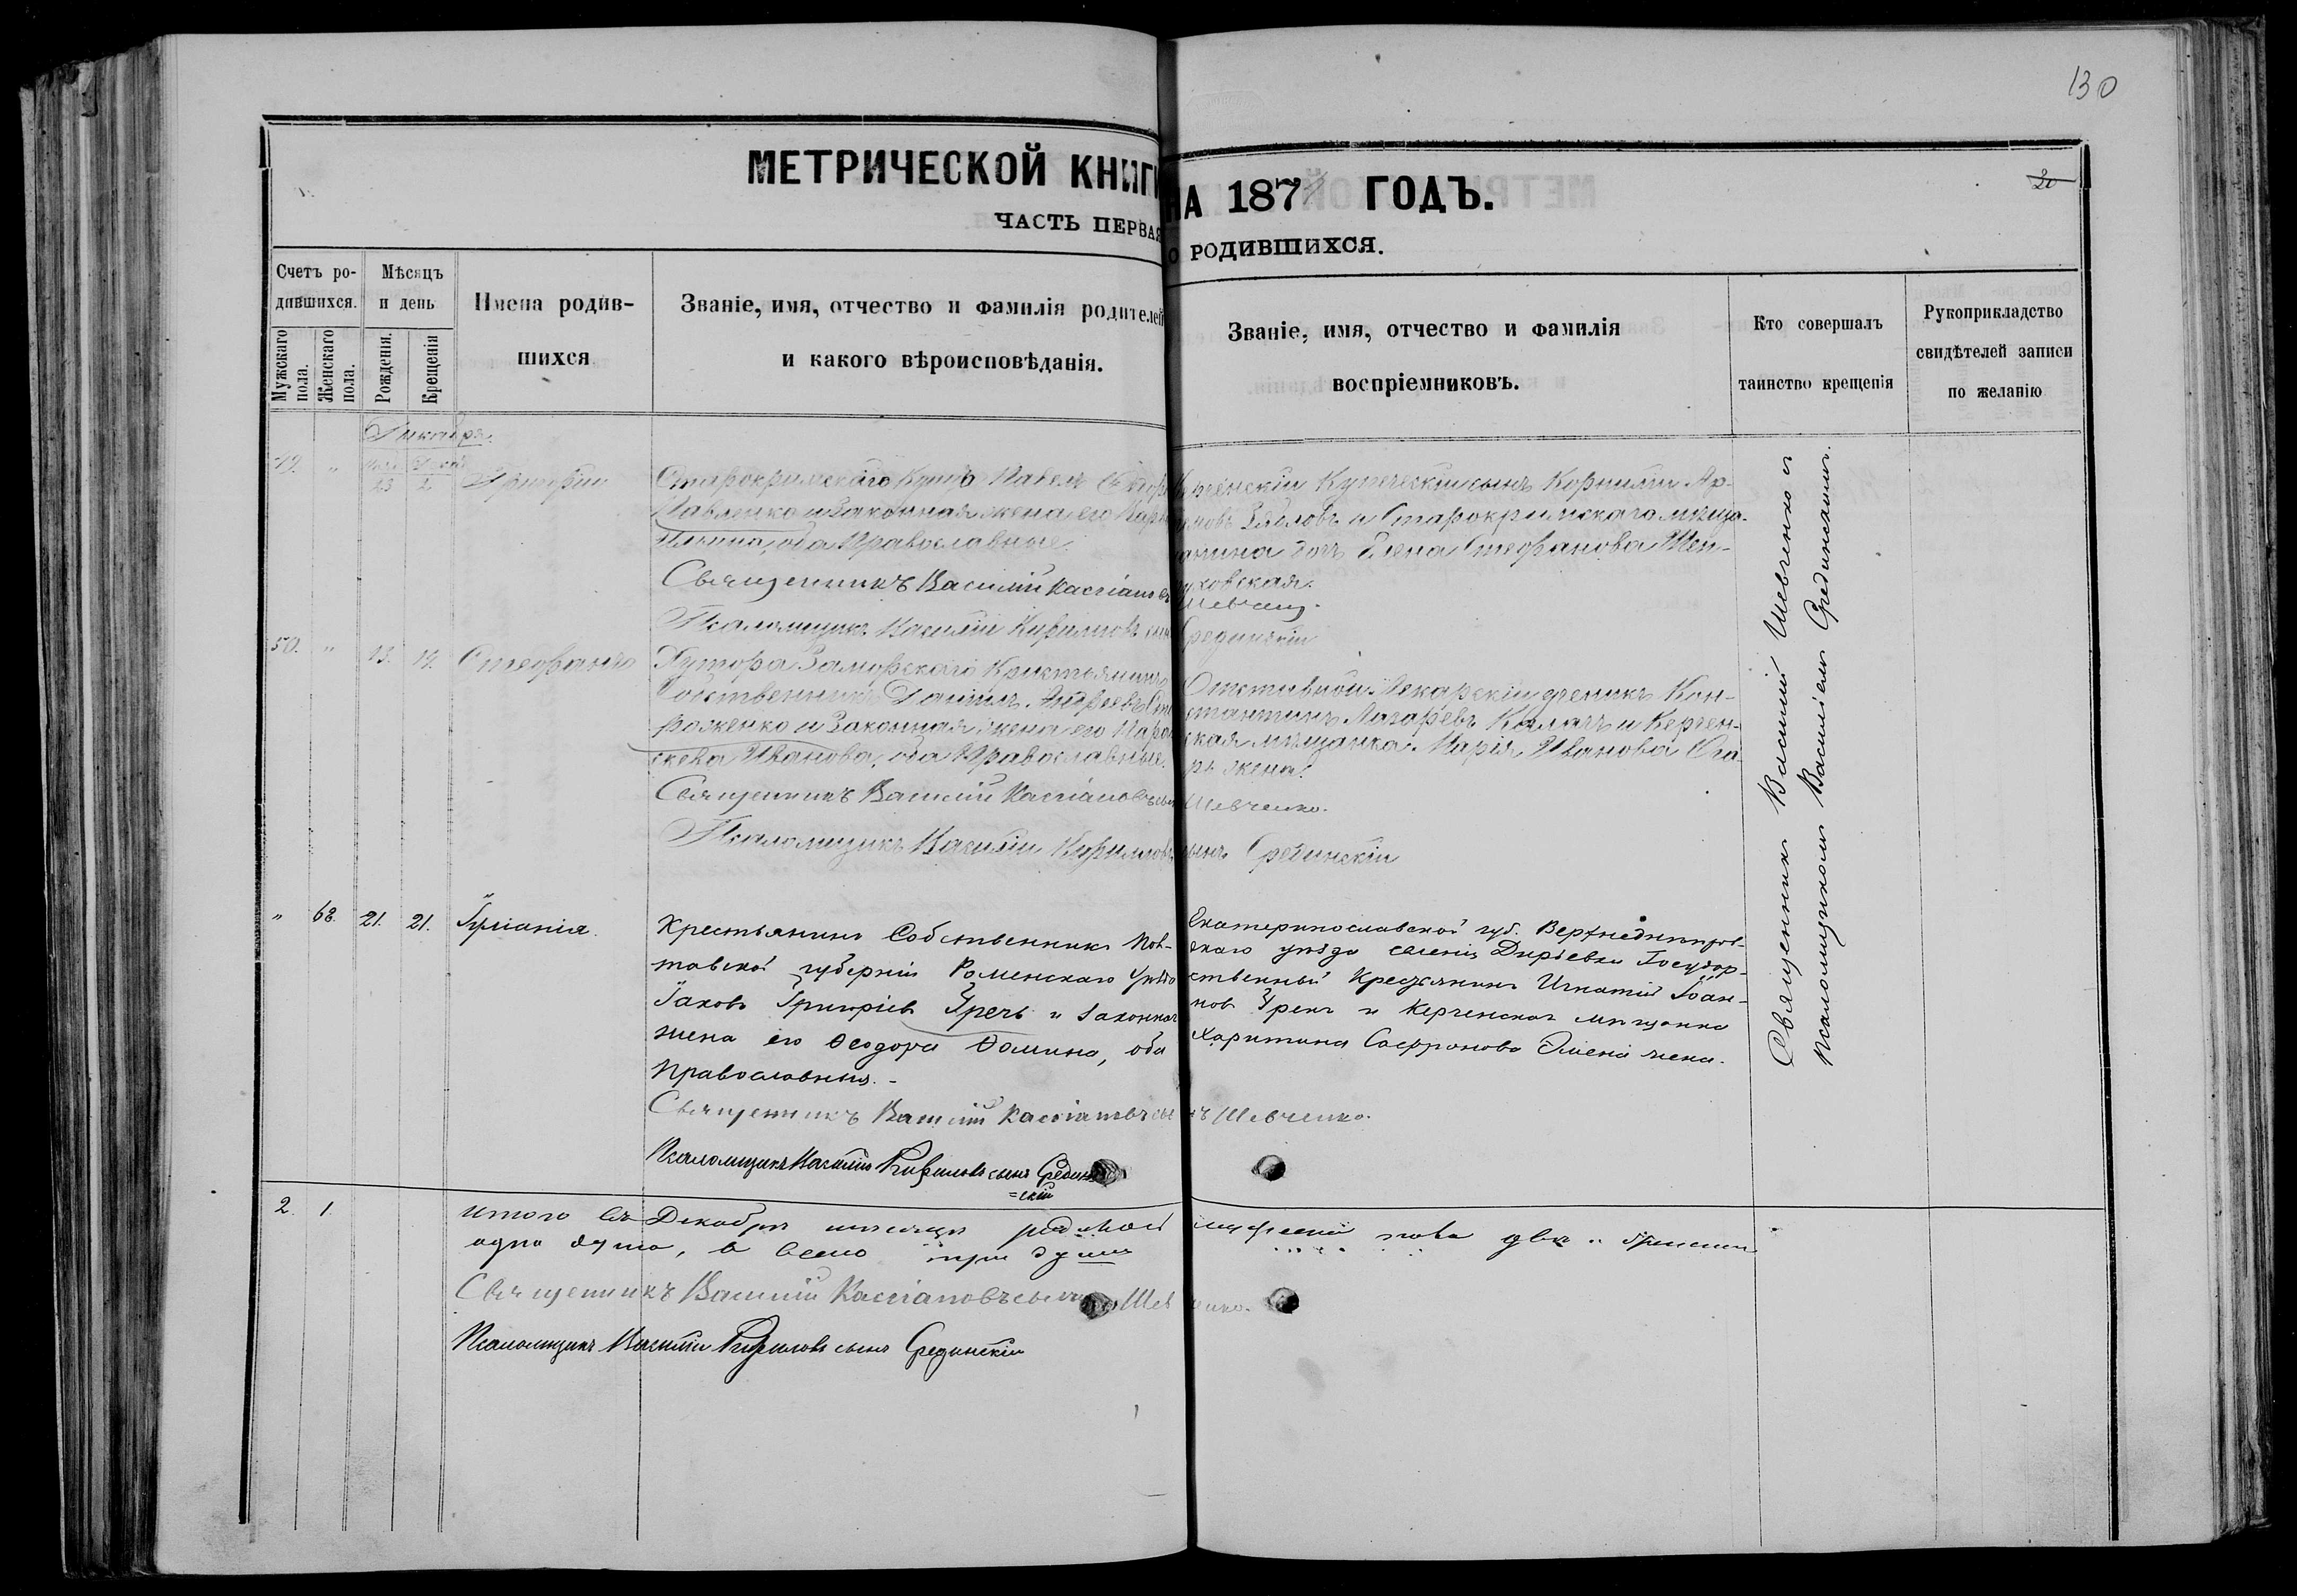 130
20
МЕТРИЧЕСКОЙ КНИГ
НА 187 ГОДЪ.
ЧАСТЬ ПЕРВАЯ
О РОДИВШИХСЯ.
Счетъ ро-
дившихся.
Мужскаго пола.
Женскаго пола.
Мѣсяцъ
и день
Рожденія.
Крещенія
Имена родив-
шихся
Званіе, имя, отчество и фамилія родителей
и какого вѣроисповѣданія.
Званіе, имя, отчество и фамилія
воспріемниковъ.
Кто совершалъ
таинство крещенія
Рукоприкладство
свидѣтелей записи
по желанію
Декабря.
49. „ 23 2 Григорій
Старокримскаго Купца Павелъ
Павленко и Законная жена его
оба Православные
Священникъ Василій Кассіановъ
Псаломщикъ Василій Кириловъ сын
Купеческій сынъ Корнилій Ар-
и Старокримскаго мѣща-
нина дочь Елена Стефанова Шеп-
уховская.
Шевченко.
Срединскій
50. „ 13. 14. Стефанъ
Хутора Заморскаго Крестьянинъ
Собственникъ Даніилъ Андреевъ Сто
роженко и Законная жена его Парас
скева Иванова, оба Православные.
Священникъ Василій Кассіановъ сын
Псаломщикъ Василій Кириловъ
Отставной Лекарскій ученикъ Кон-
стантинъ Лазаревъ Калачъ и Керчен-
ская мѣщанка Марія Иванова
жена.
Шевченко.
сынъ Срединскій
„ 68. 21. 21. Іуліанія.
Крестьянинъ Собственникъ Пол-
тавской губерніи Роменскаго Уѣзда
Іаковъ Григоріев Гречь и законная
жена его Ѳеодора Ѳомина, оба
Православныя.-
Священникъ Василій Кассіановъ сы
Псаломщикъ Василій Кириловъ сынъ Средин
=скій
Екатеринославской губ. Верхнеднѣпров-
скаго уѣзда селенія Государ-
ственный Крестьянинъ Игнатій Іоан-
нов и Керченская мѣщанка
Харитина Софронова жена.
ъ Шевченко.
Священникъ Василій Шевченко съ
Псаломщикомъ Василіемъ Срединскимъ.
2. 1. Итого въ Декабрѣ мѣсяцѣ мужескаго пола два и женскаго
одна душа, а всего три души
Священникъ Василій Кассіановъ сынъ Шевченко.
Псаломщикъ Василій Кириловъ сынъ Срединскій